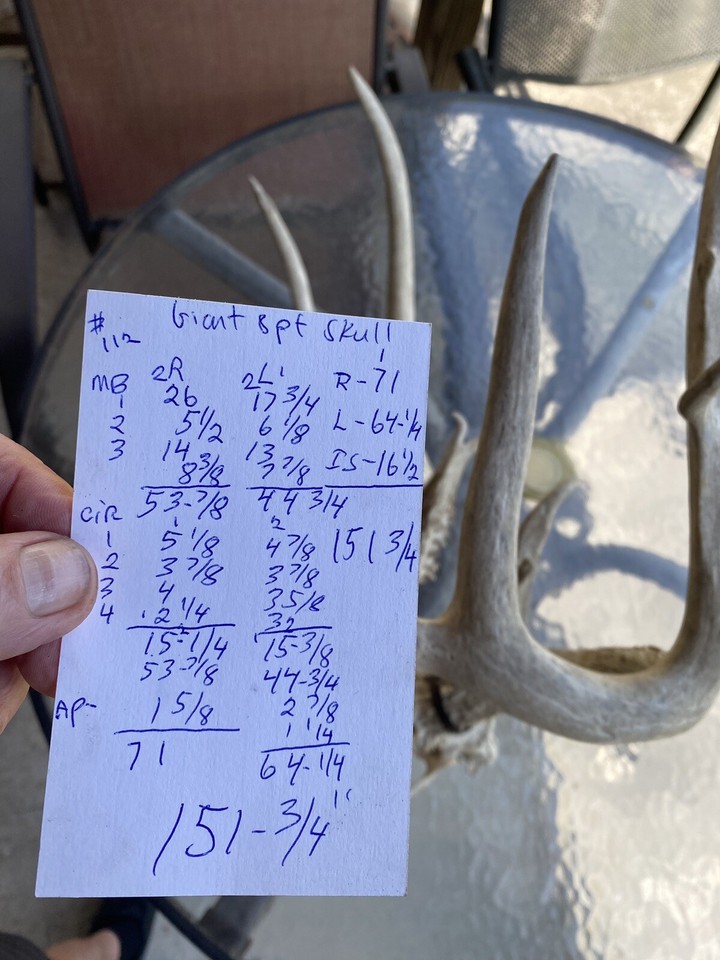 # 112 Giant 8pt skull
MB 2R 2L R-71
1 26 17 3/4 L-64-1/4
2 5 1/2 6 1/8 IS-16 1/2
3 14 13
8 3/8 7 7/8
53-7/8 44 3/4
CIR
1 5 1/8 4 7/8 151 3/4
2 3 7/8 3 7/8
3 4 3 5/8
4 2 1/4 3
15-1/4 15-3/8
53-7/8 44-3/4
AP- 1 5/8 2 7/8
1 1/4
71 64-1/4
151-3/4"